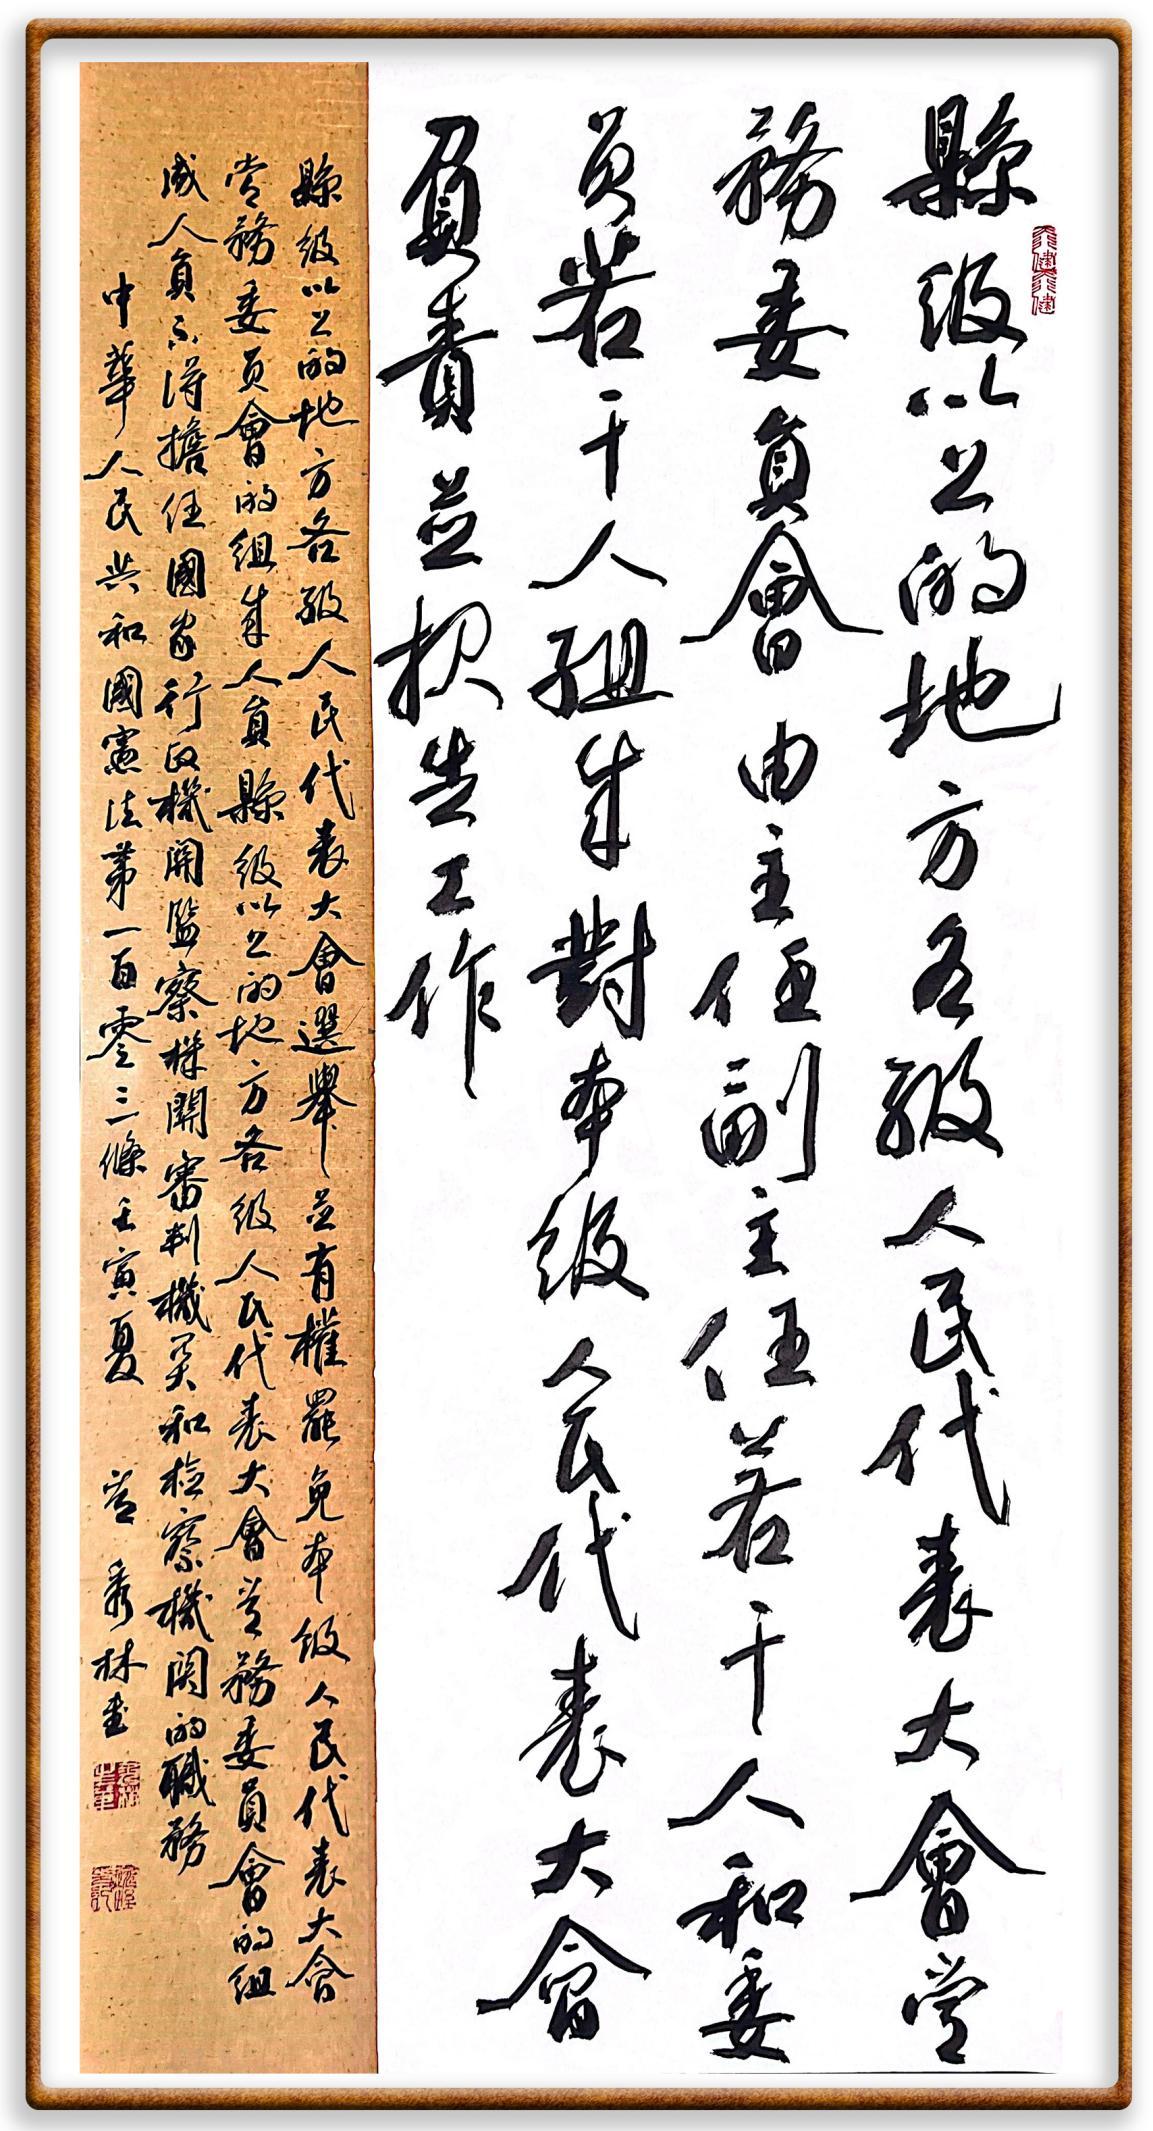 縣級以上的地方各級人民代表大會常
務委員會由主任副主任若干人和委
员若干人組成對本級人民代表大會
負責並报告工作
縣級以上的地方各級人民代表大會選舉並有權罷免本級人民代表大會
常務委员會的組成人員縣級以上的地方各級人民代表大會常務委員會的組
成人員不得擔任國家行政機關監察機關審判機关和檢察機関的職務
中華人民共和國憲法第一百零三條壬寅夏 秀林書